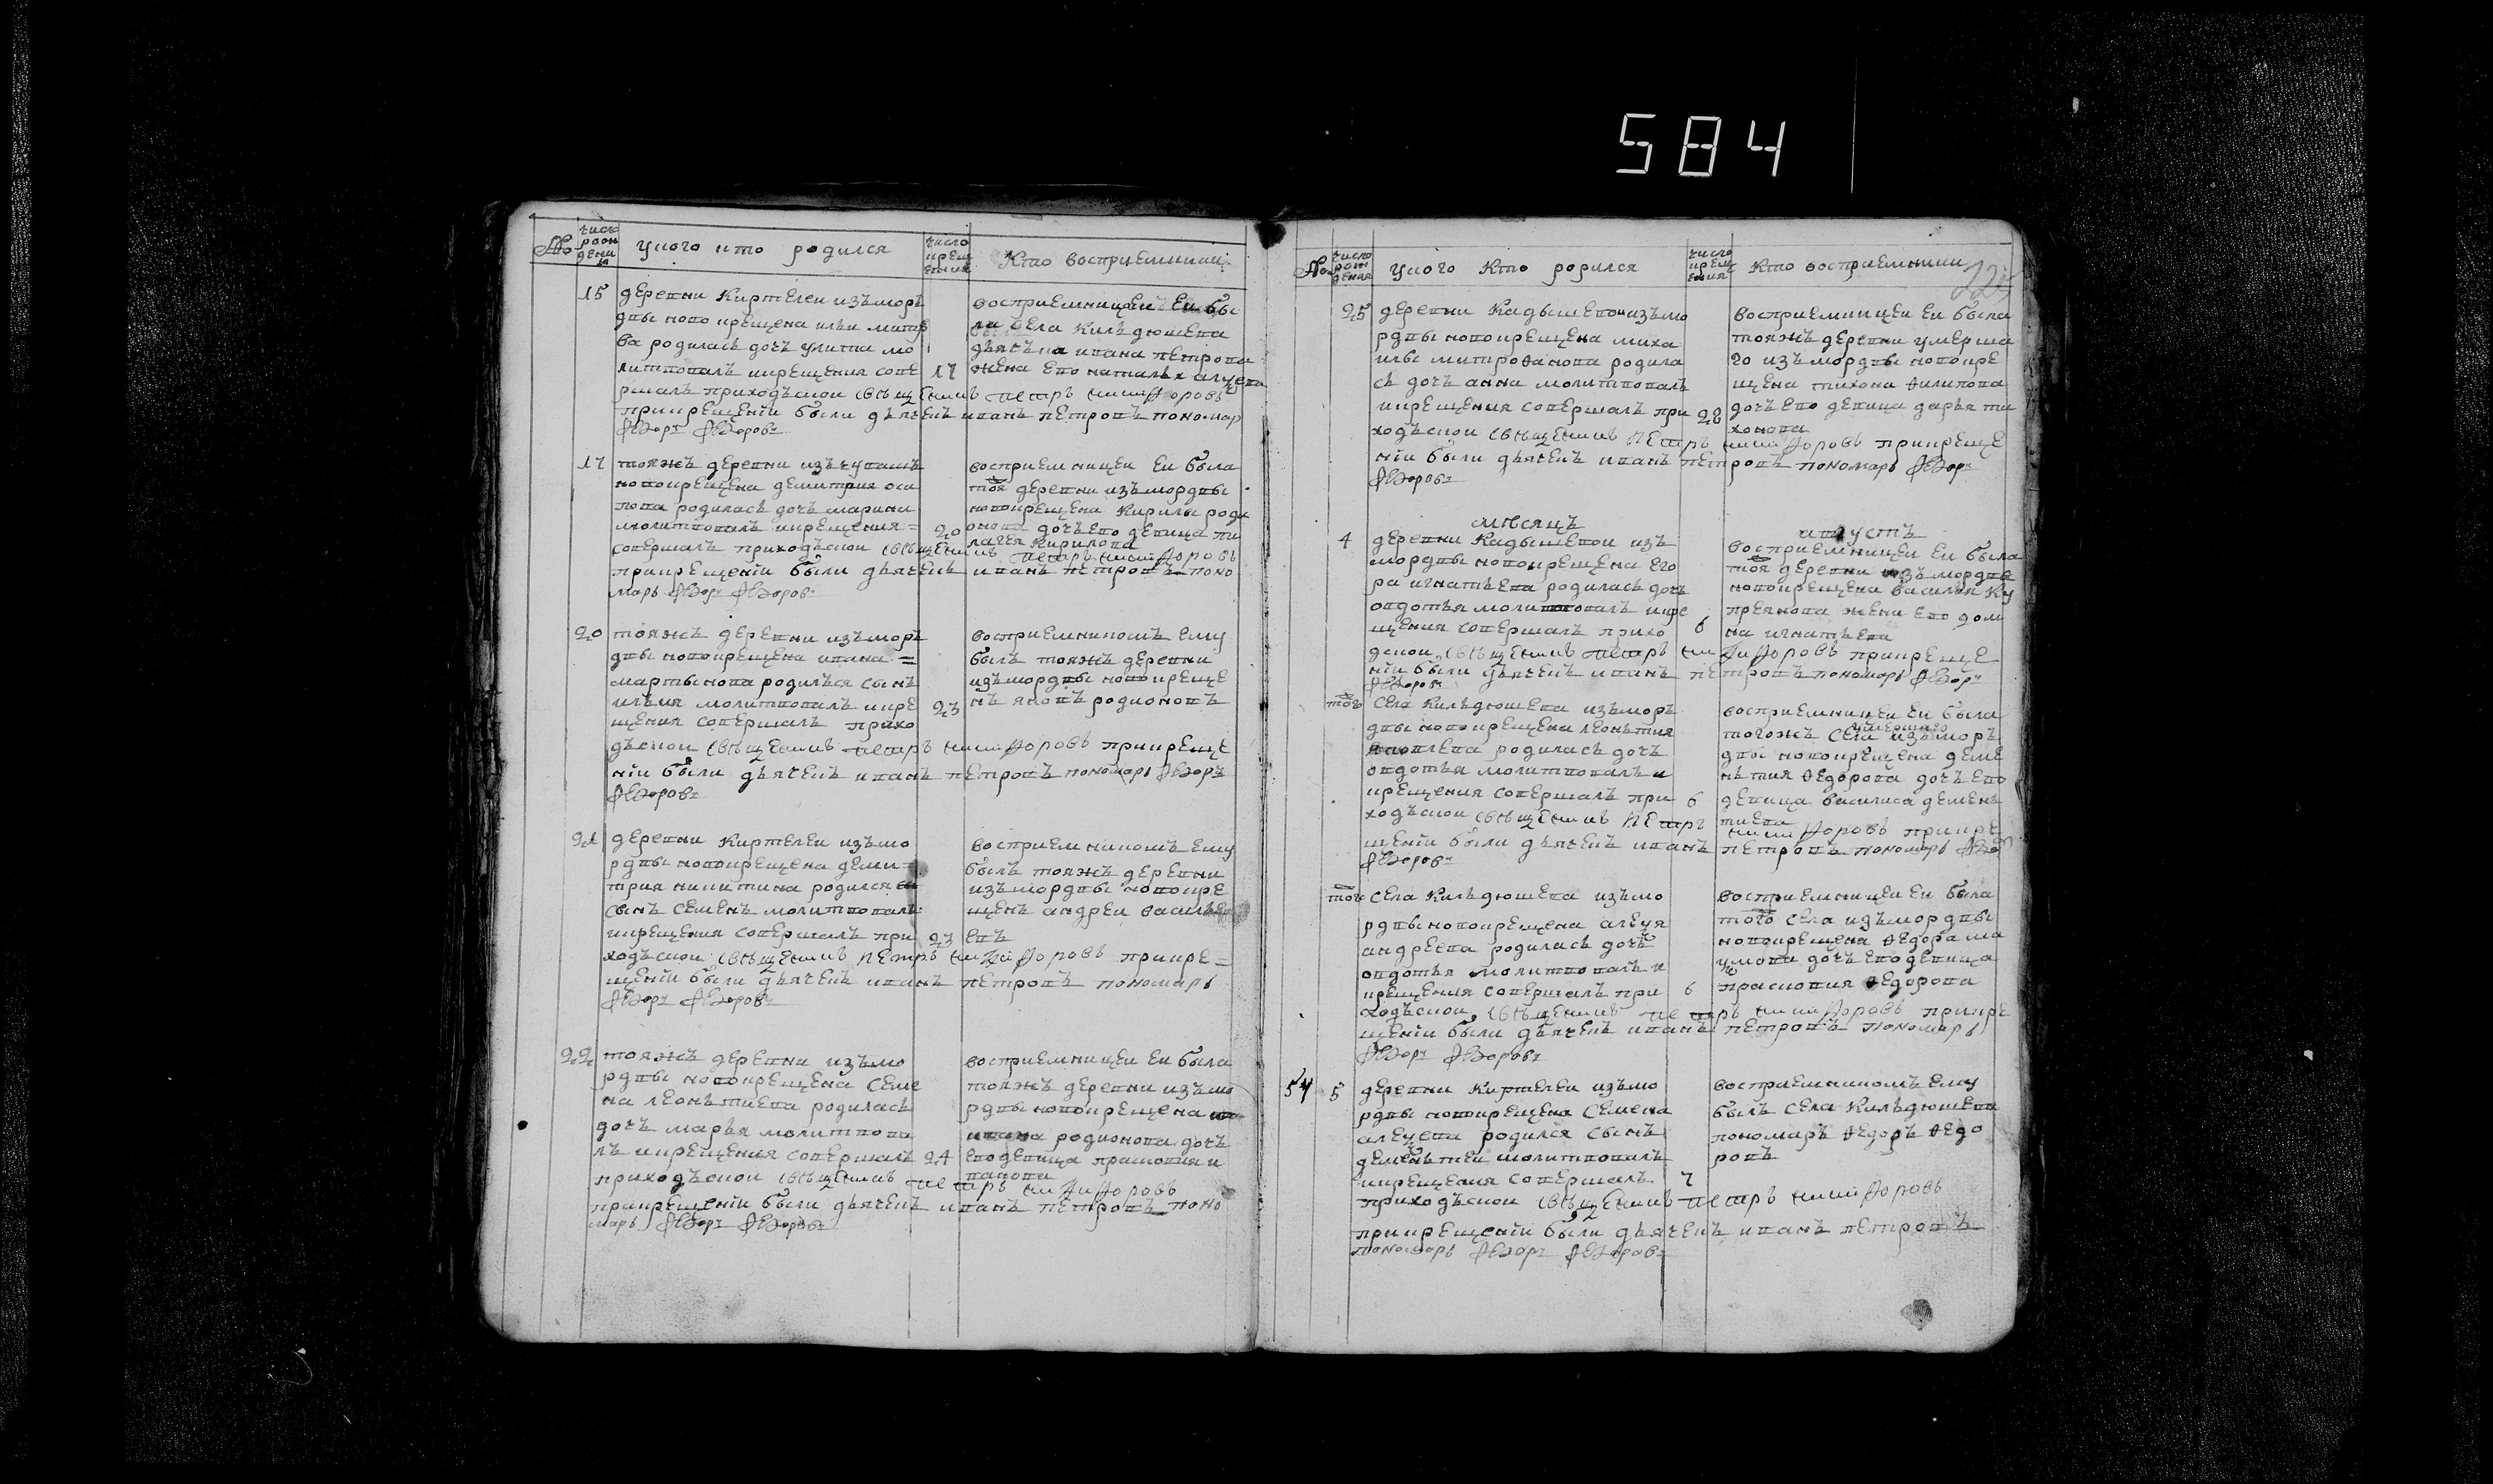 584
№ число рожденія у кого кто родился число крещения Кто восприемники
15 деревни Киртелеи изъ морд
вы новокрещена ильи митро
ва родилась дочь улита мо
литвовалъ икрещения сове
ршалъ приходъскои священникъ петръ никифоровъ
прикрещенiи были дьячекъ иванъ петровъ пономар
Ѳедоръ Ѳедоровъ
17
восприемницеи еи бы
ла села Кильдюшева
дьячька ивана петрова
жена ево наталья
17 тояжъ деревни изъ чувашъ
новокрещена демитрия оси
пова родилась дочь марина
молитвовалъ икрещения =
совершалъ приходъскои священникъ петръ никифоровъ
прикрещенiи были дьячекъ иванъ петровъ поно
марь Ѳедоръ Ѳедоровъ
20
восприемницеи еи была
тоя деревни изъ мордвы
новокрещена Кирилы роди
онова дочь ево девица пе
лагея Кирилова
20 тояжъ деревни изъ морд
вы новокрещена ивана =
мартынова родился сынъ
илья молитвовалъ икре
щения совершалъ прихо
дъскои священникъ петръ никифоровъ прикреще
нiи были дьячекъ иванъ петровъ пономарь Ѳедоръ
Ѳедоровъ
23
восприемникомъ ему
былъ тояжъ деревни
изъ мордвы новокреще
нъ яковъ родионовъ
21 деревни Киртелеи изъ мо
рдвы новокрещена деми =
трия никитина родился
сынъ семенъ молитвовалъ
икрещения совершалъ при
ходъскои священникъ петръ никифоровъ прикре =
щенiи были дьячекъ иванъ петровъ пономарь
Ѳедоръ Ѳедоровъ
23
восприемникомъ ему
былъ тояжъ деревни
изъ мордвы новокре
щенъ андреи василь
евъ
22 тояжъ деревни изъ мо
рдвы новокрещена семе
на леонътиева родилась
дочь марья молитвова
лъ икрещения совершалъ
приходъскои священникъ петръ никифоровъ
прикрещенiи были дьячекъ иванъ петровъ поно
марь Ѳедоръ Ѳедоровъ
24
восприемницеи еи была
тояжъ деревни изъ мо
рдвы новокрещена
ивана родионова дочь
ево девица прасковия и
ванова
№ число рожденія у кого кто родился число крещения Кто восприемники
25 деревни Кадышевои изъ мо
рдвы новокрещена миха
илы митрофанова родила
сь дочь анна молитвовалъ
икрещения совершалъ при
ходъскои священникъ петръ никифоровъ прикреще
нiи были дьячекъ иванъ петровъ пономарь Ѳедоръ
Ѳедоровъ
28
восприемницеи еи была
тояжъ деревни умерша
го изъ мордвы новокре
щена тихона Ѳилипова
дочь ево девица дарья ти
хонова
месяцъ августъ
4 деревни Кадышевои изъ
мордвы новокрещена его
ра игнатьева родилась дочь
овдотья молитвовалъ икре
щения совершалъ прихо
дскои священникъ петръ никифоровъ прикреще
нiи были дьячекъ иванъ петровъ пономарь Ѳедоръ
Ѳедоровъ
6
восприемницеи еи была
тоя деревни изъ мордвы
новокрещена василья Ку
преянова жена ево дом
на игнатьева
того села Кильдюшева изъ морд
вы новокрещена леонътия
яковлева родилась дочь
овдотья молитвовалъ и
крещения совершалъ при
ходъскои священникъ петръ никифоровъ прикре
щенiи были дьячекъ иванъ петровъ пономарь Ѳедоръ
Ѳедоровъ
6
восприемницеи еи была
тогожъ села умершаго изъ морд
вы новокрещена деме
нътия Ѳедорова дочь ево
девица василиса деменъ
тиева
того села Кильдюшева изъ мо
рдвы новокрещена
андреева родилась дочь
овдотья молитвовалъ и
крещения совершалъ при
ходъскои священникъ петръ никифоровъ прикре
щенiи были дьячекъ иванъ петровъ пономарь
Ѳедоръ Ѳедоровъ
6
восприемницеи еи была
того села изъ мордвы
новокрещена Ѳедора на
умова дочь ево девица
прасковия Ѳедорова
54 5 деревни Киртелеи изъ мо
рдвы новокрещена семена
родился сынъ
деменътеи молитвовалъ
икрещения совершалъ
приходъскои священникъ петръ никифоровъ
прикрещенiи были дьячекъ иванъ петровъ
пономарь Ѳедоръ Ѳедоровъ
7
восприемникомъ ему
былъ села Кильдюшева
пономарь Ѳедоръ Ѳедо
ровъ